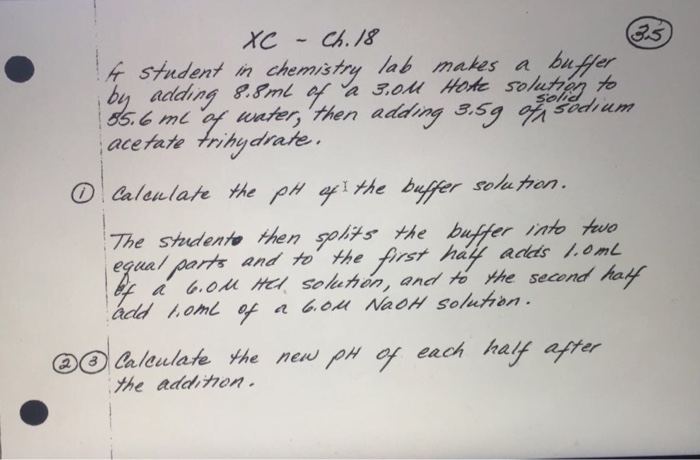 XC - Ch. 18
35
A student in chemistry lab makes a buffer
by adding 8.8mL of a 3.0M HOAc solution to
55.6 mL of water, then adding 3.5g of solid sodium
acetate trihydrate.
① Calculate the pH of the buffer solution.
The student then splits the buffer into two
equal parts and to the first half adds 1.0mL
of a 6.0M HCl solution, and to the second half
add 1.0mL of a 6.0M NaOH solution.
② ③ Calculate the new pH of each half after
the addition.